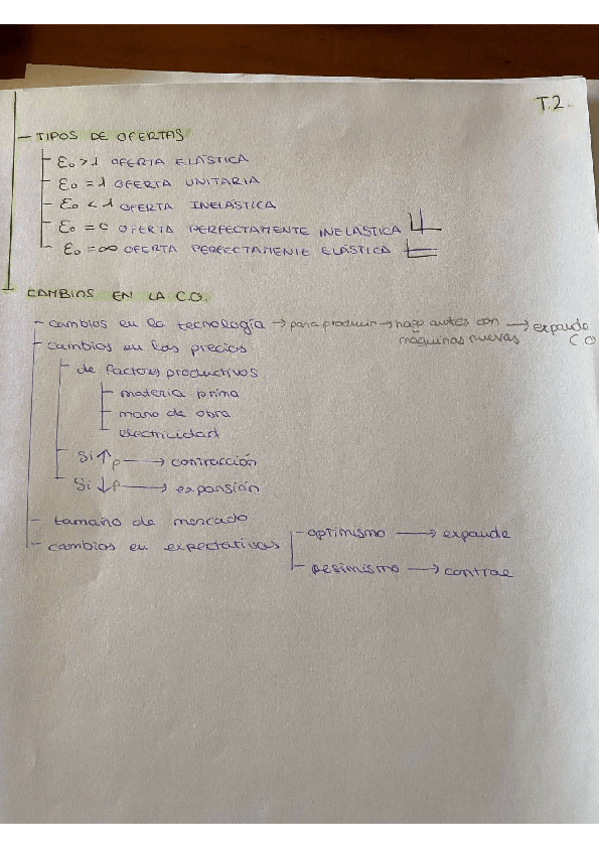 T.2.
- TIPOS DE OFERTAS
- Eo > 1 OFERTA ELÁSTICA
- Eo = 1 OFERTA UNITARIA
- Eo < 1 OFERTA INELÁSTICA
- Eo = 0 OFERTA PERFECTAMENTE INELASTICA
- Eo = ∞ OFERTA PERFECTAMENTE ELÁSTICA
CAMBIOS EN LA C.O.
- cambios en la tecnología → para producir → hago antes con máquinas nuevas → expando CO
- cambios en los precios
- de factores productivos
- materia prima
- mano de obra
- electricidad
- Si ↑ p → contracción
- Si ↓ p → expansión
- tamaño de mercado
- cambios en expectativas
- optimismo → expande
- pesimismo → contrae